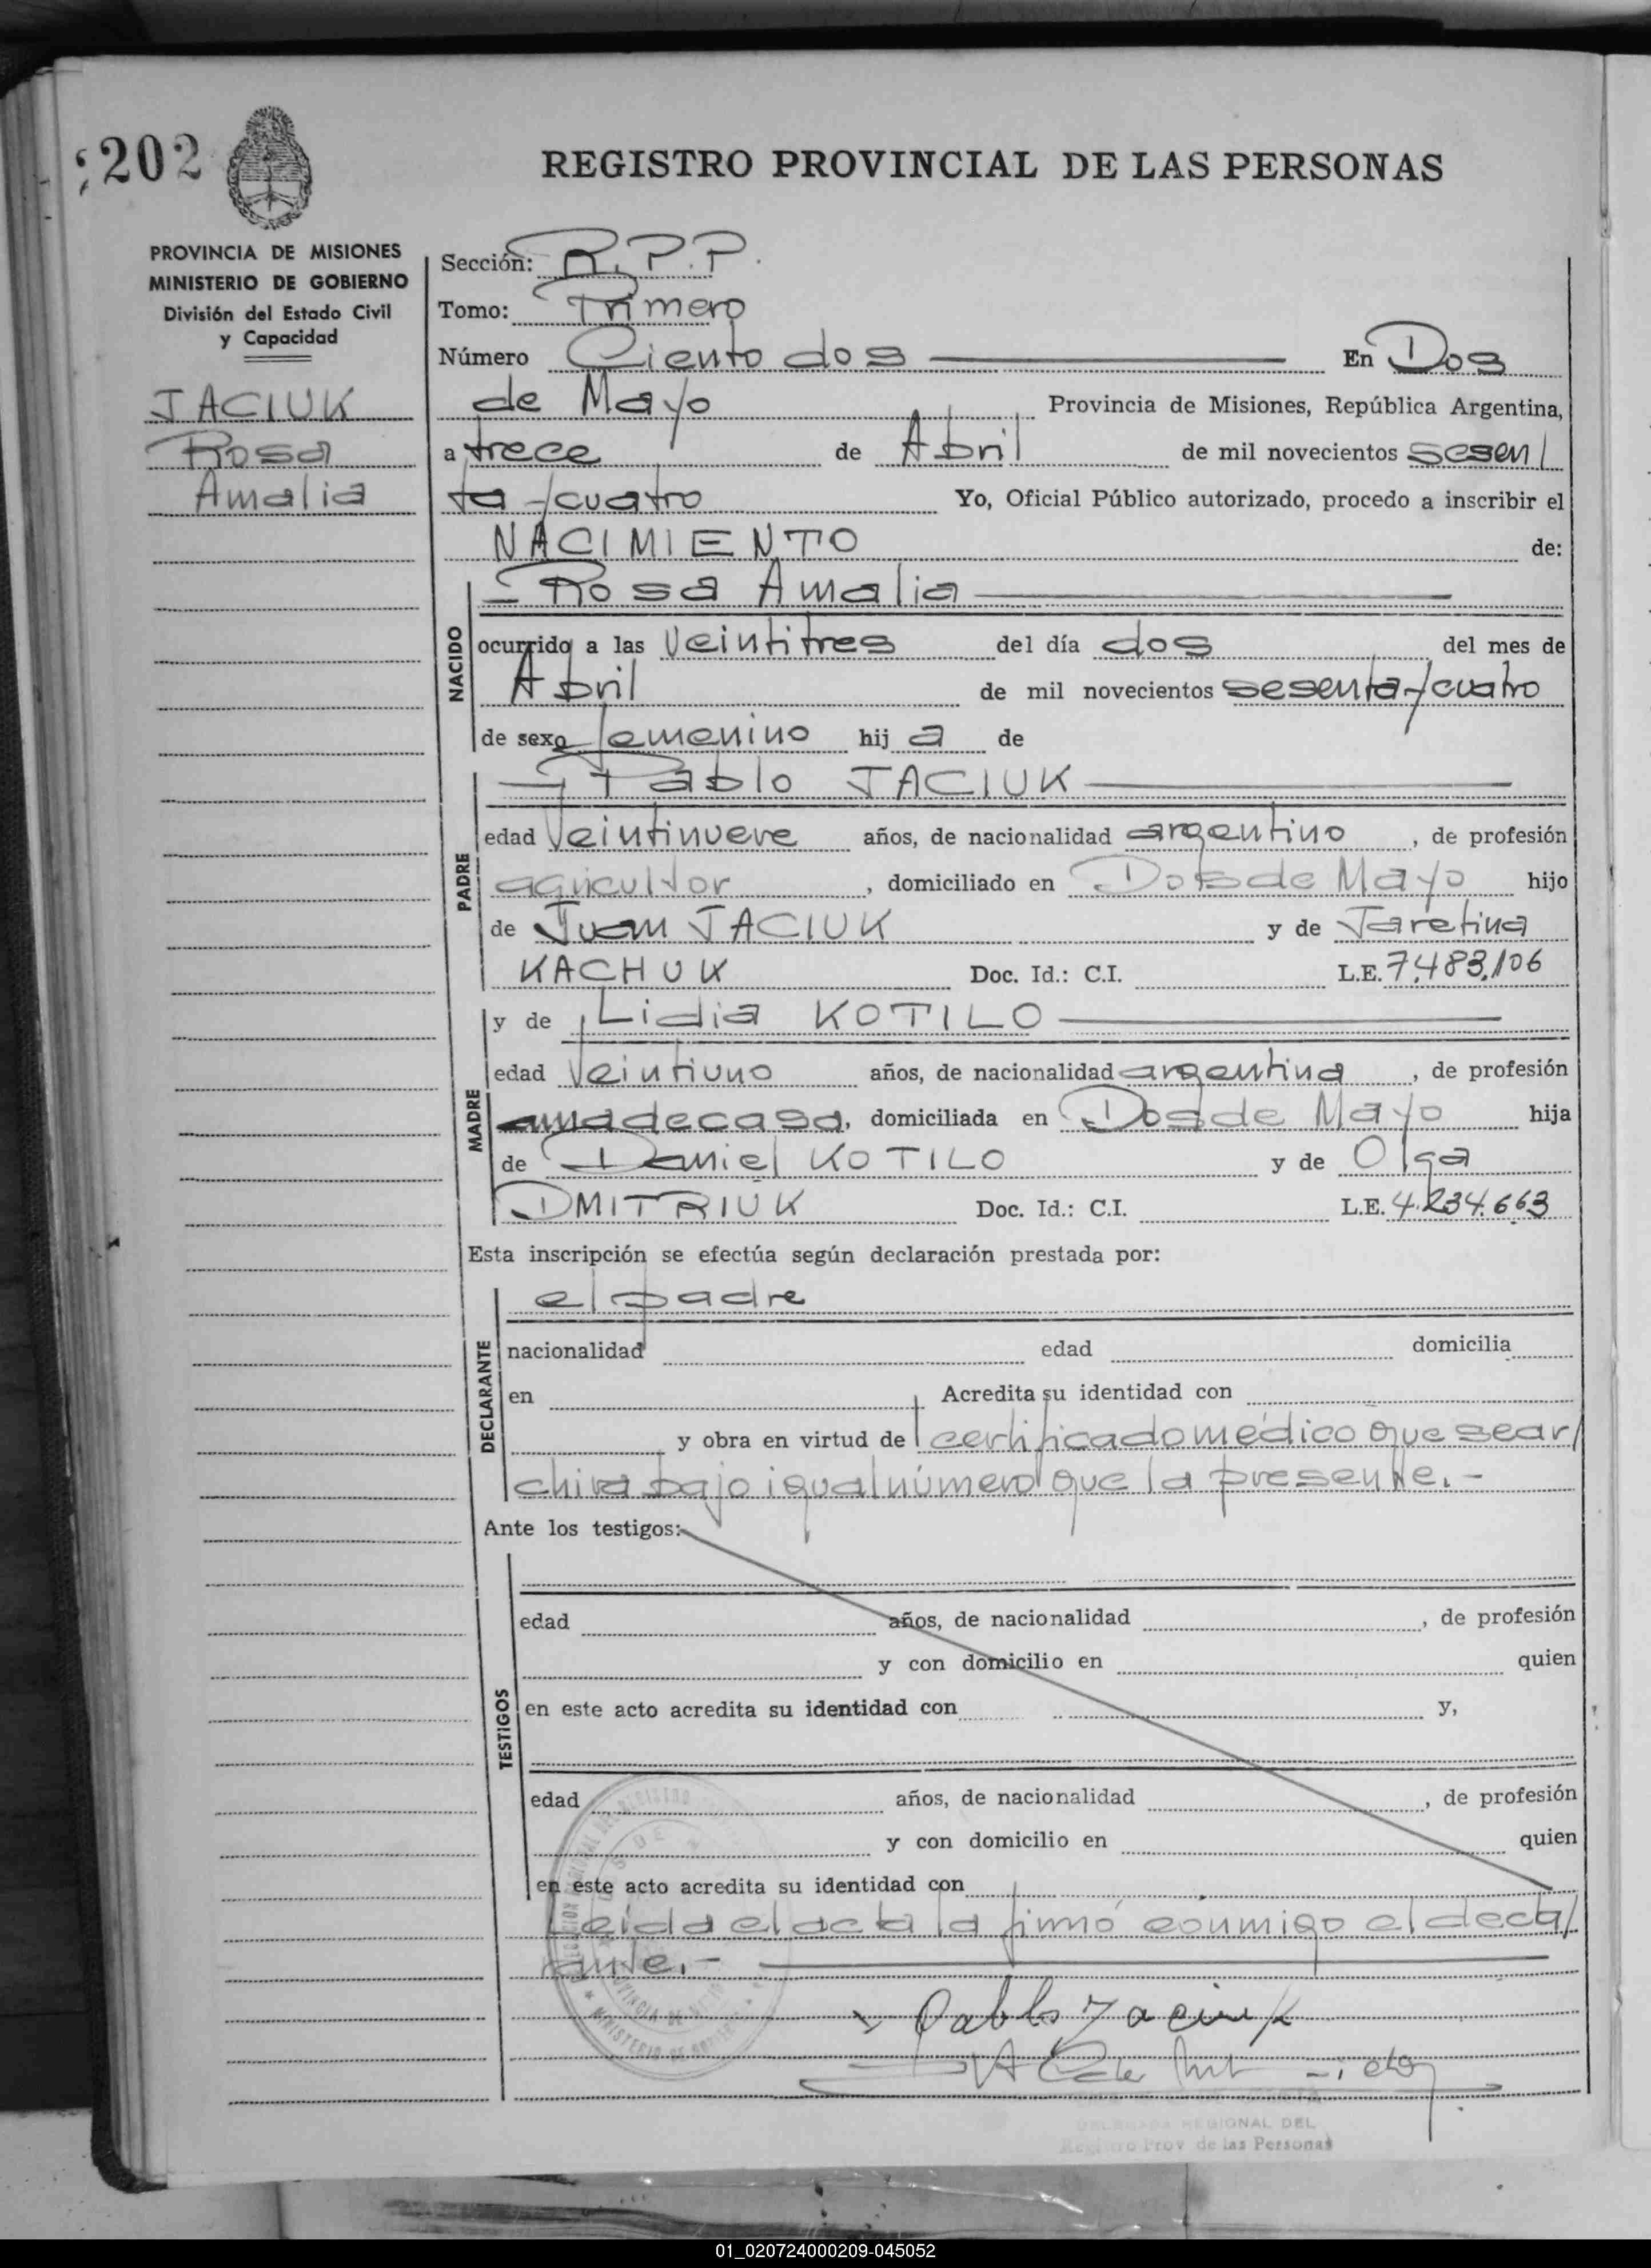 202
REGISTRO PROVINCIAL DE LAS PERSONAS
PROVINCIA DE MISIONES
MINISTERIO DE GOBIERNO
División del Estado Civil
y Capacidad
JACIUK
Rosa
Amalia
Sección: R.P.P.
Tomo: Primero
Número Ciento dos En Dos
de Mayo Provincia de Misiones, República Argentina,
a trece de Abril de mil novecientos sesen/
ta y cuatro Yo, Oficial Público autorizado, procedo a inscribir el
NACIMIENTO de:
NACIDO
- Rosa Amalia
ocurrido a las veintitres del día dos del mes de
Abril de mil novecientos sesenta y cuatro
de sexo femenino hij a de
PADRE
Pablo JACIUK
edad veintinueve años, de nacionalidad argentino, de profesión
agricultor, domiciliado en Dos de Mayo hijo
de Juan JACIUK y de Taretina
KACHUK Doc. Id.: C.I. L.E. 7.483.106
MADRE
y de Lidia KOTILO
edad veintiuno años, de nacionalidad argentina, de profesión
ama de casa, domiciliada en Dos de Mayo hija
de Daniel KOTILO y de Olga
DMITRIUK Doc. Id.: C.I. L.E. 4.234.663
Esta inscripción se efectúa según declaración prestada por:
DECLARANTE
el padre
nacionalidad edad domicilia
en Acredita su identidad con
y obra en virtud de certificado médico que se ar/
chiva bajo igual número que la presente.-
Ante los testigos:
TESTIGOS
edad años, de nacionalidad , de profesión
y con domicilio en quien
en este acto acredita su identidad con y,
edad años, de nacionalidad , de profesión
y con domicilio en quien
en este acto acredita su identidad con
Leída el acta la firmó conmigo el decla/
rante.-
Pablo Jaciuk
REGIONAL DEL
Registro Prov de las Personas
01_020724000209-045052